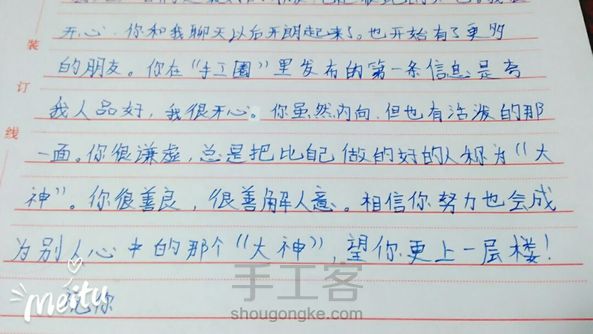 开心。你和我聊天以后开朗起来了。也开始有了更多
装
的朋友。你在“手工圈”里发布的第一条信息是夸
订
我人品好，我很开心。你虽然内向，但也有活泼的那
线
一面。你很谦虚，总是把比自己做的好的人称为“大
神”。你很善良，很善解人意。相信你努力也会成
为别人心中的那个“大神”，望你更上一层楼！
手工客
meitu
你
shougongke.com